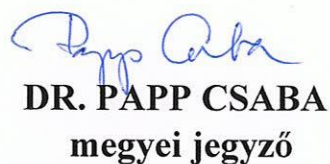 Papp Csaba
DR. PAPP CSABA
megyei jegyző